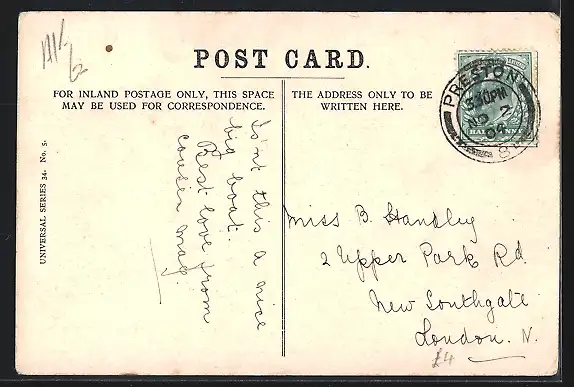 POST CARD.
FOR INLAND POSTAGE ONLY, THIS SPACE
MAY BE USED FOR CORRESPONDENCE.
THE ADDRESS ONLY TO BE
WRITTEN HERE.
UNIVERSAL SERIES 34. No. 5.
Is'nt this a nice
big boat.
Best love from
cousin May.
Miss B. Handley
2 Upper Park Rd
New Southgate
London. N.
£4
PRESTON
3.30PM
NO 7
HALFPENNY